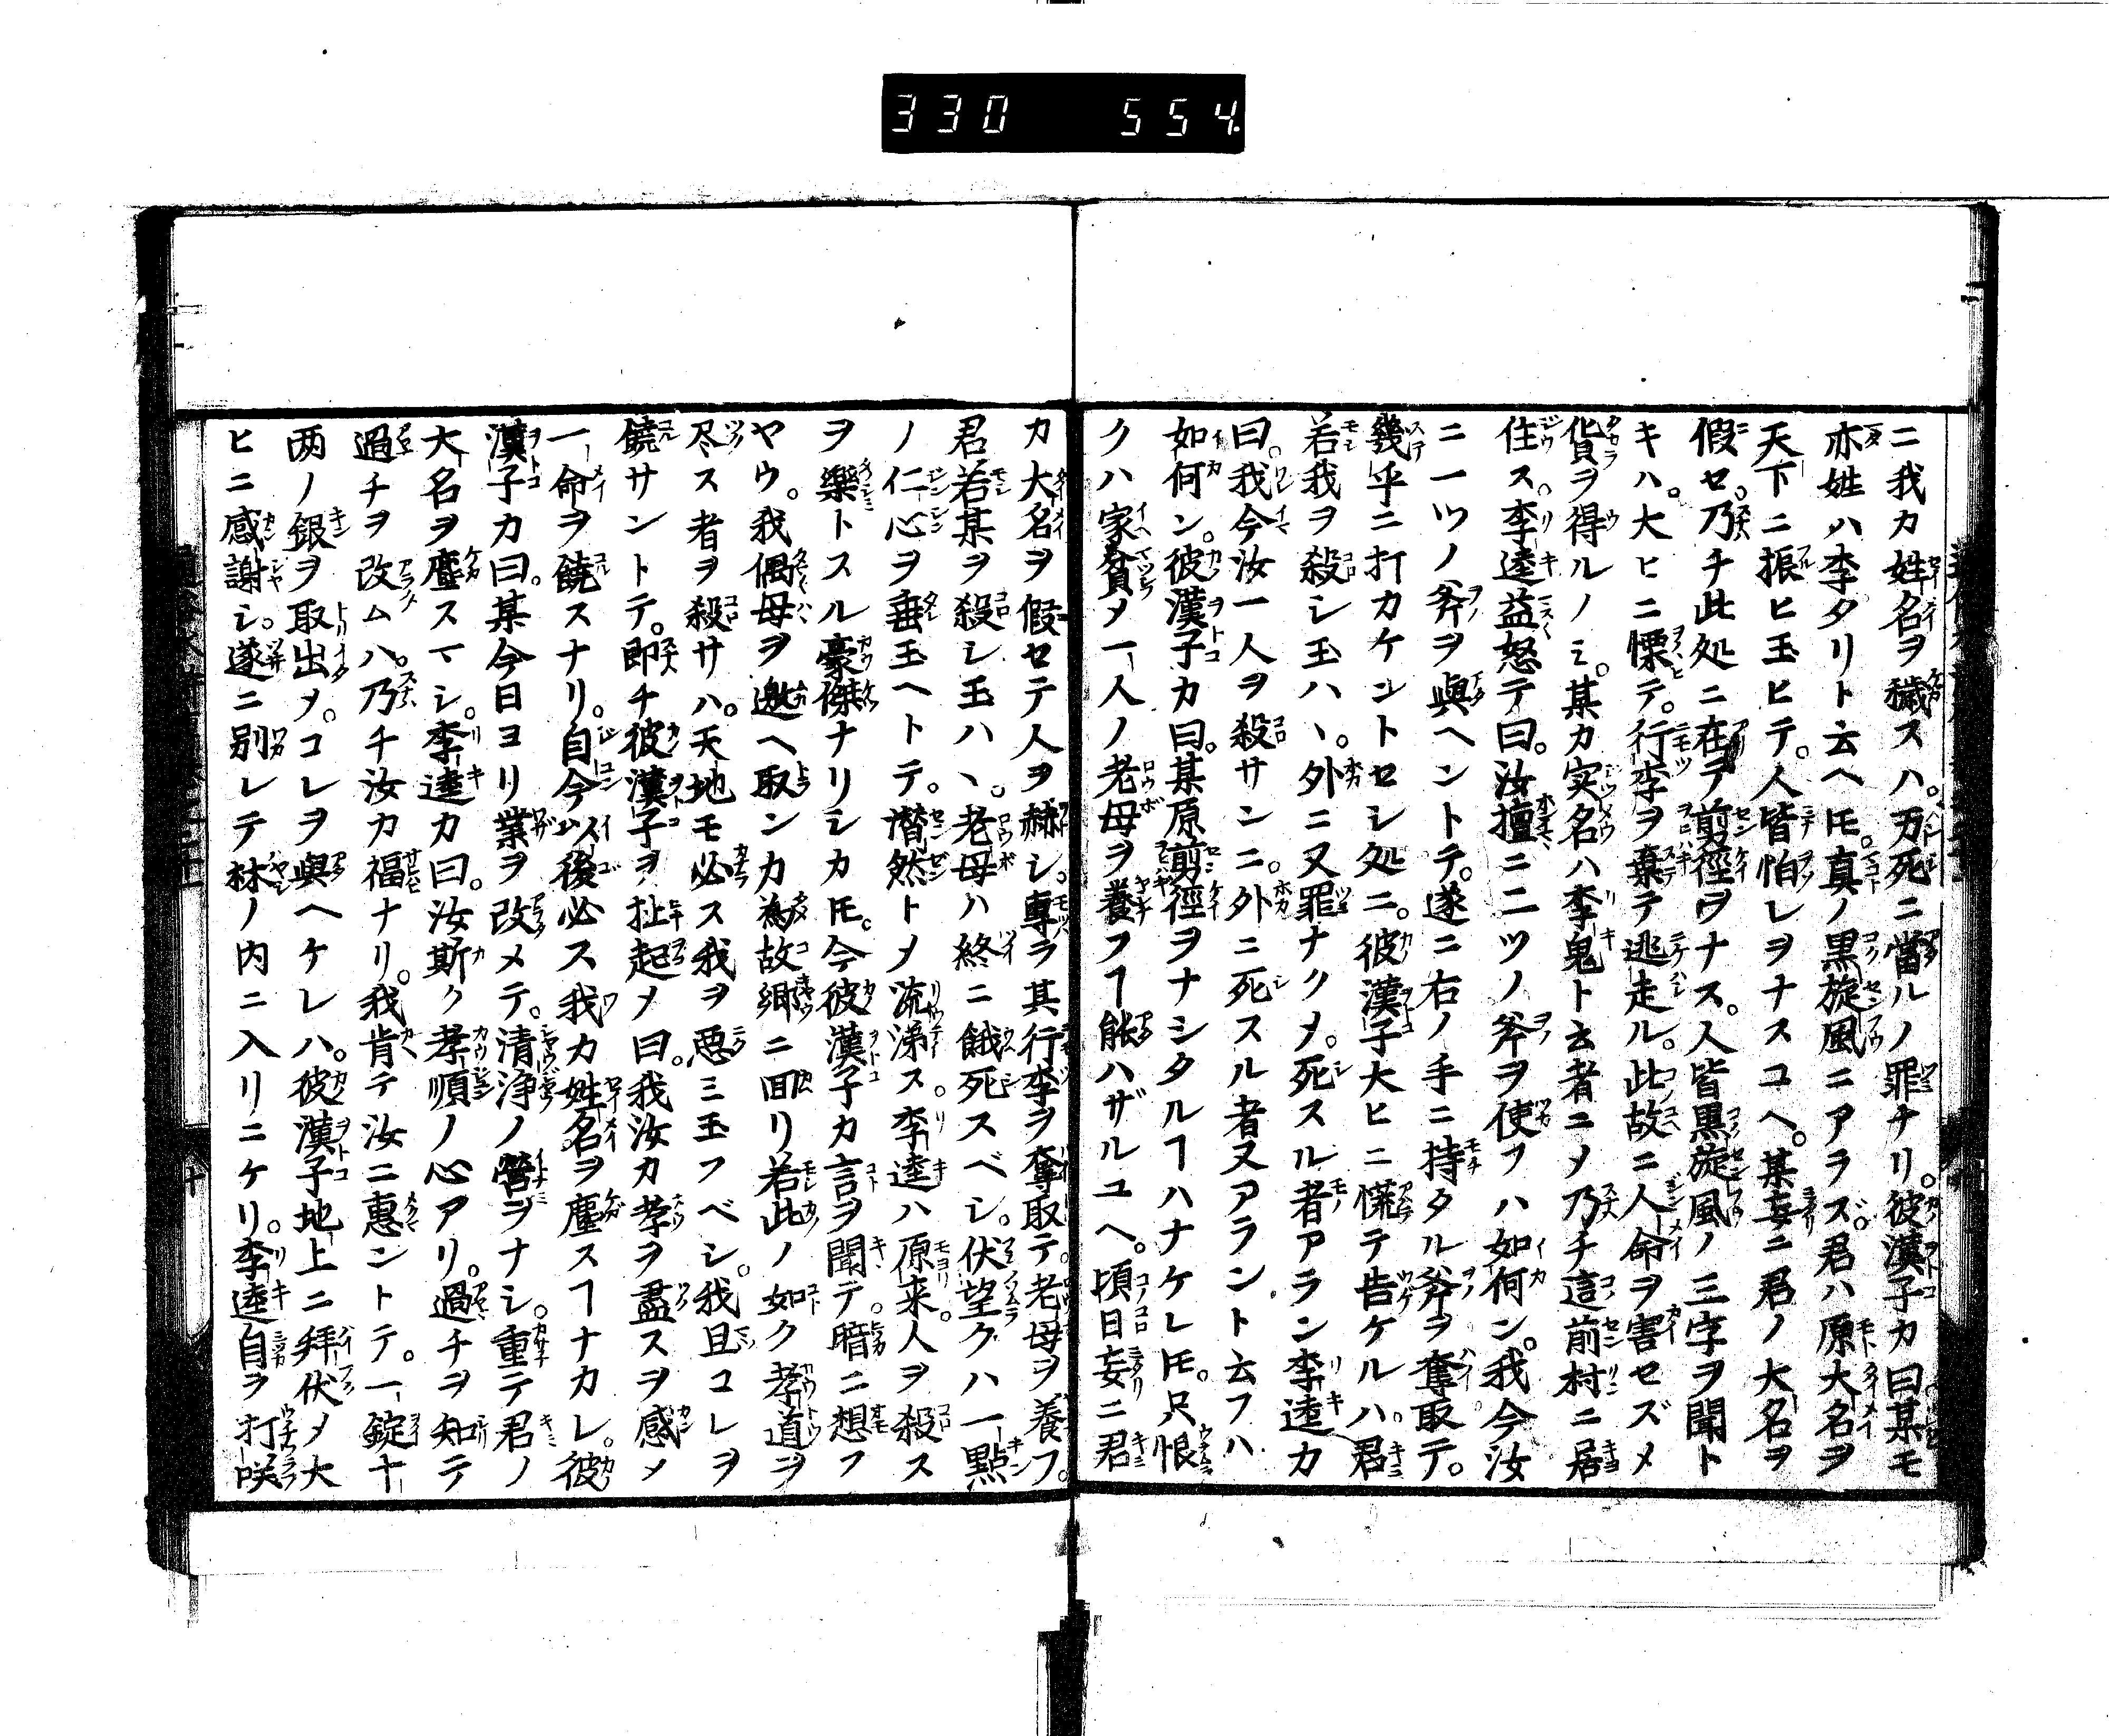 330 554.
ニ我カ姓名ヲ穢スハ。万死ニ當ルノ罪ナリ。彼漢子カ曰某モ
亦姓ハ李タリト云ヘ𪜈。真ノ黒旋風ニアラズ。君ハ原大名ヲ
天下ニ振ヒ玉ヒテ。人皆怕レヲナスユヘ。某妄ニ君ノ大名ヲ
假セ。乃チ此処ニ在テ剪徑ヲナス。人皆黒旋風ノ三字ヲ聞ト
キハ。大ヒニ慄テ。行李ヲ棄テ逃走ル。此故ニ人命ヲ害セズメ
貨ヲ得ルノミ。某カ実名ハ李鬼ト云者ニメ乃チ這前村ニ居
住ス。李逵益怒テ曰。汝擅ニ二ツノ斧ヲ使フハ如何ン。我今汝
ニ一ツノ斧ヲ與ヘントテ。遂ニ右ノ手ニ持タル斧ヲ奪取テ。
幾乎ニ打カケントセシ処ニ。彼漢子大ヒニ慌テ告ケルハ。君
若我ヲ殺シ玉ハヽ。外ニ又罪ナクメ。死スル者アラン李逵カ
曰。我今汝一人ヲ殺サンニ。外ニ死スル者又アラント云フハ
如何ン。彼漢子カ曰。某原剪徑ヲナシタルヿハナケレ𪜈。只恨
クハ家貧メ一人ノ老母ヲ養フヿ能ハザルユヘ。頃日妄ニ君
カ大名ヲ假セテ人ヲ赫シ。專ラ其行李ヲ奪取テ。老母ヲ養フ。
君若某ヲ殺シ玉ハヽ。老母ハ終ニ餓死スベシ。伏望クハ一點
ノ仁心ヲ垂玉ヘトテ。潸然トメ流涕ス。李逵ハ原来人ヲ殺ス
ヲ樂トスル豪傑ナリシカ𪜈。今彼漢子カ言ヲ聞テ。暗ニ想フ
ヤウ。我偶母ヲ邀ヘ取ンカ為故郷ニ回リ若此ノ如ク孝道ヲ
尽ス者ヲ殺サハ。天地モ必ス我ヲ悪ミ玉フベシ。我且コレヲ
饒サントテ。即チ彼漢子ヲ扯起メ曰。我汝カ孝ヲ盡スヲ感メ
一命ヲ饒スナリ。自今以後必ス我カ姓名ヲ塵スヿナカレ。彼
漢子カ曰。某今日ヨリ業ヲ改メテ。清浄ノ營ヲナシ。重テ君ノ
大名ヲ塵スマシ。李逵カ曰。汝斯ク孝順ノ心アリ。過チヲ知テ
過チヲ改ムハ。乃チ汝カ福ナリ。我肯テ汝ニ惠ントテ。一錠十
两ノ銀ヲ取出メ。コレヲ與ヘケレハ。彼漢子地上ニ拜伏メ大
ヒニ感謝シ。遂ニ別レテ林ノ内ニ入リニケリ。李逵自ラ打咲
十